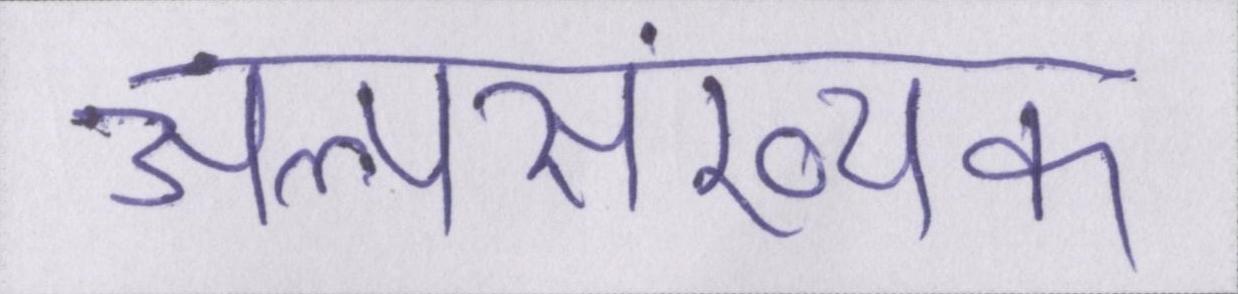 अल्पसंख्यक